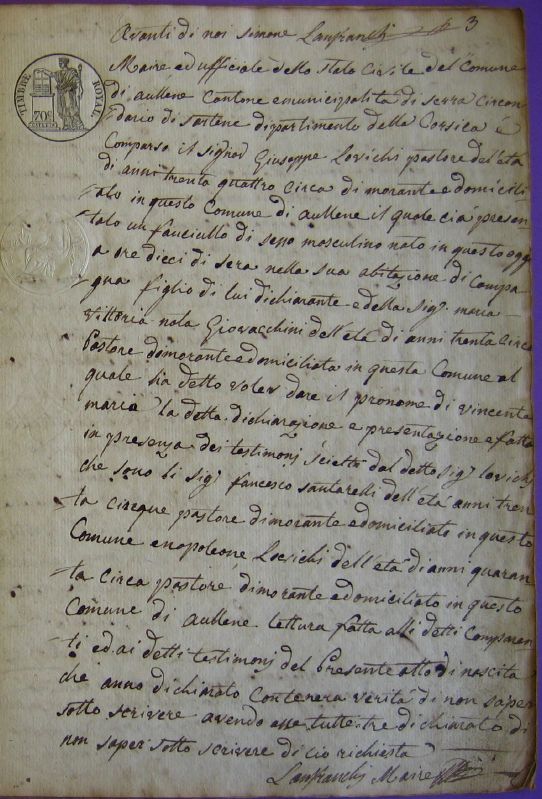 3
Avanti di noi Simone Lanfranchi
TIMBRE ROYAL
70c
Maire ed uffiziale dello Stato Civile del Comune
di aullene Cantone e municipalità di Serra Circon
dario di Sartene dipartimento della Corsica è
Comparso il Signor Giuseppe Lovichi pastore dell'età
di anni trenta quattro circa dimorante e domicili
ato in questo Comune di aullene il quale ci à presen
tato un fanciullo di sesso masculino nato in questo oggi
a ore dieci di sera nella sua abitazione di Campa
qua figlio di lui dichiarante e della Sigra maria
Vittoria nata Giovacchini dell'età di anni trenta circa
Pastore dimorante e domiciliata in questa Comune al
quale hà detto voler dare il pronome di vincente
maria la detta dichiarazione e presentazione e fatta
in presenza dei testimonj scielti dal detto Sigr lovichi
che sono li Sigri fancesco santarelli dell'età anni tren
ta cinque pastore dimorante e domiciliato in questo
Comune e napoleone Lovichi dell'età di anni quaran
ta circa pastore dimorante e domiciliato in questo
Comune di aullene lettura fatta alli detti Comparen
ti ed ai detti testimonj del Presente atto di nascita
che anno dichiarato Contenere verità di non saper
sotto scrivere avendo essi tutti tre dichiarato di
non saper sotto scrivere di ciò richiesta
Lanfranchi Maire